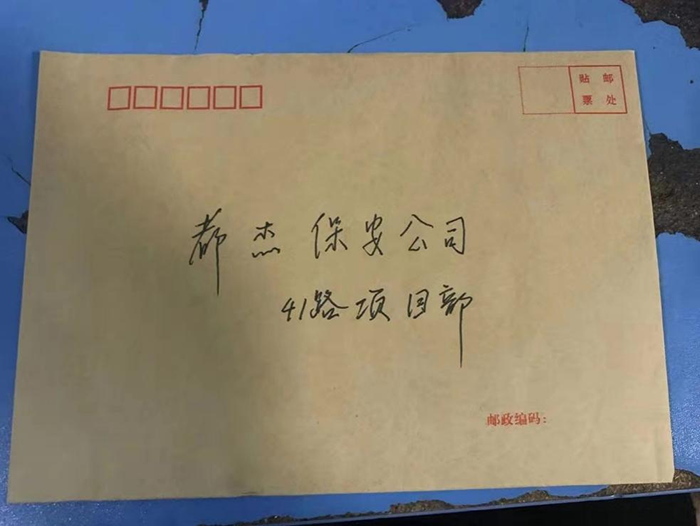 贴邮
票处
都杰保安公司
41路项目部
邮政编码：